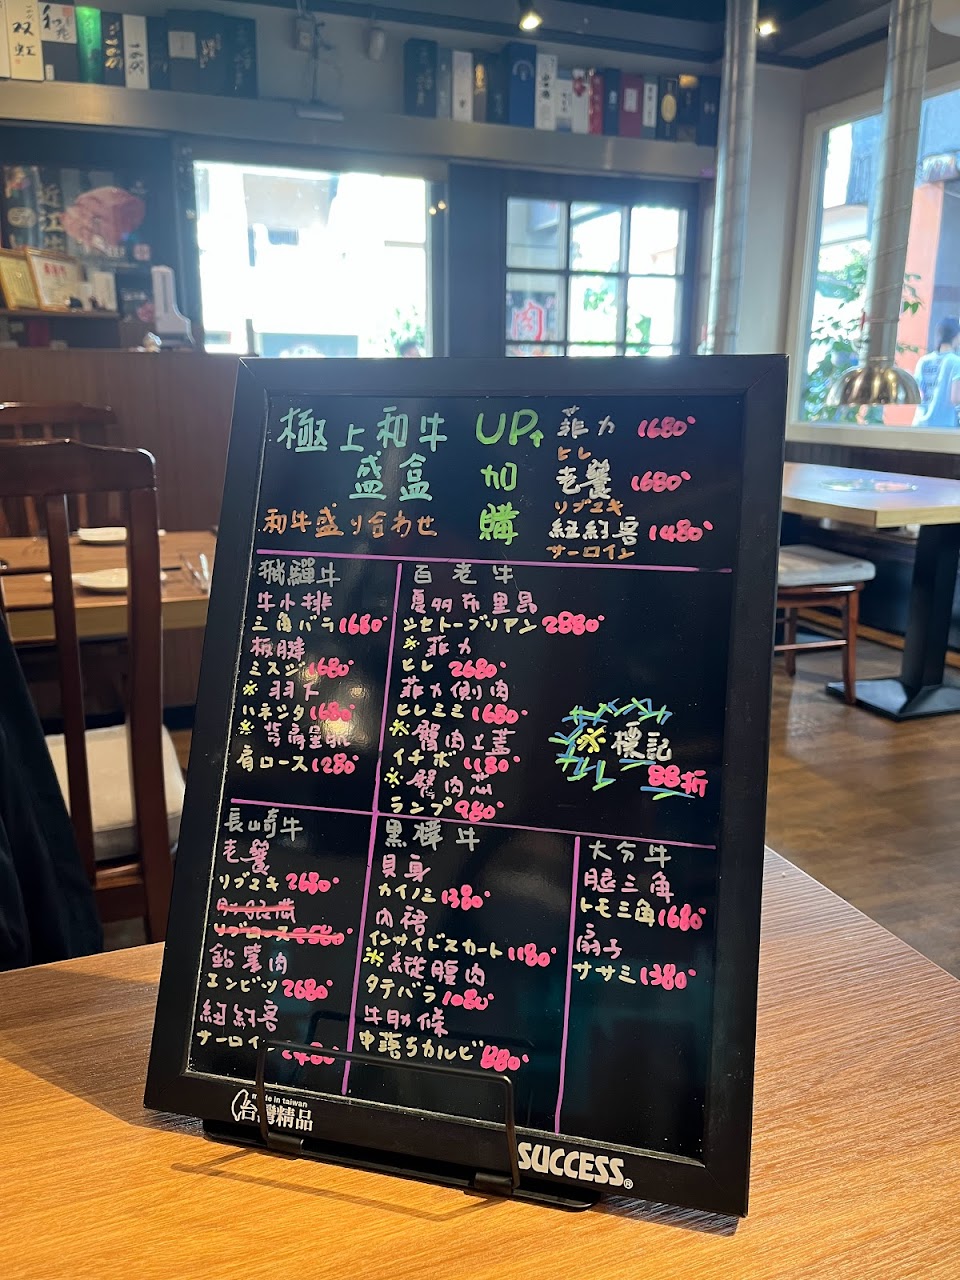 双虹
近江牛
肉
極上和牛
盛盒
和牛盛り合わせ
UP↑
加
購
菲力 1680
ヒレ
老饕 1680
リブマキ
紐約客 1480
サーロイン
飛驒牛
牛小排
三角バラ 1680
板腱
ミスジ 1680
※ 羽下
ハネシタ 1680
※ 背肩里肌
肩ロース 1280
百老牛
夏多布里昂
シャトーブリアン 2880
※ 菲力
ヒレ 2680
菲力側肉
ヒレミミ 1680
※ 臀肉上蓋
イチボ 1180
※ 臀肉芯
ランプ 980
※ 標記
88折
長崎牛
老饕
リブマキ 2680
リブロース 2580
鉛筆肉
エンピツ 2680
紐約客
サーロイン 2480
黑樺牛
貝身
カイノミ 1380
內裙
インサイドスカート 1180
※ 縱腹肉
タテバラ 1080
牛肋條
中落ちカルビ 880
大分牛
腿三角
トモ三角 1680
扇子
ササミ 1380
made in taiwan
台灣精品
SUCCESS®